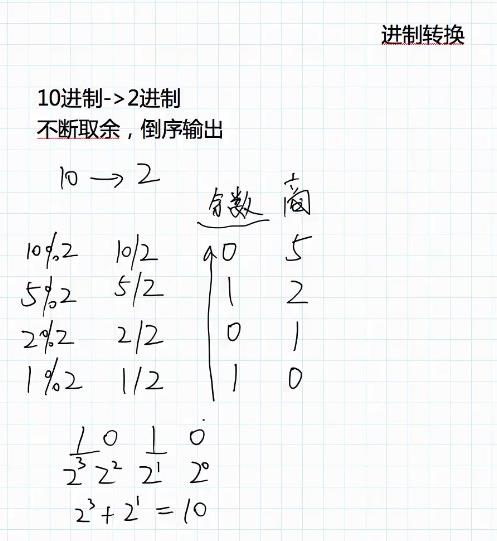 进制转换
10进制->2进制
不断取余，倒序输出
10 → 2
余数 商
10%2 10/2 0 5
5%2 5/2 1 2
2%2 2/2 0 1
1%2 1/2 1 0
1 0 1 0
2³ 2² 2¹ 2⁰
2³+2¹=10